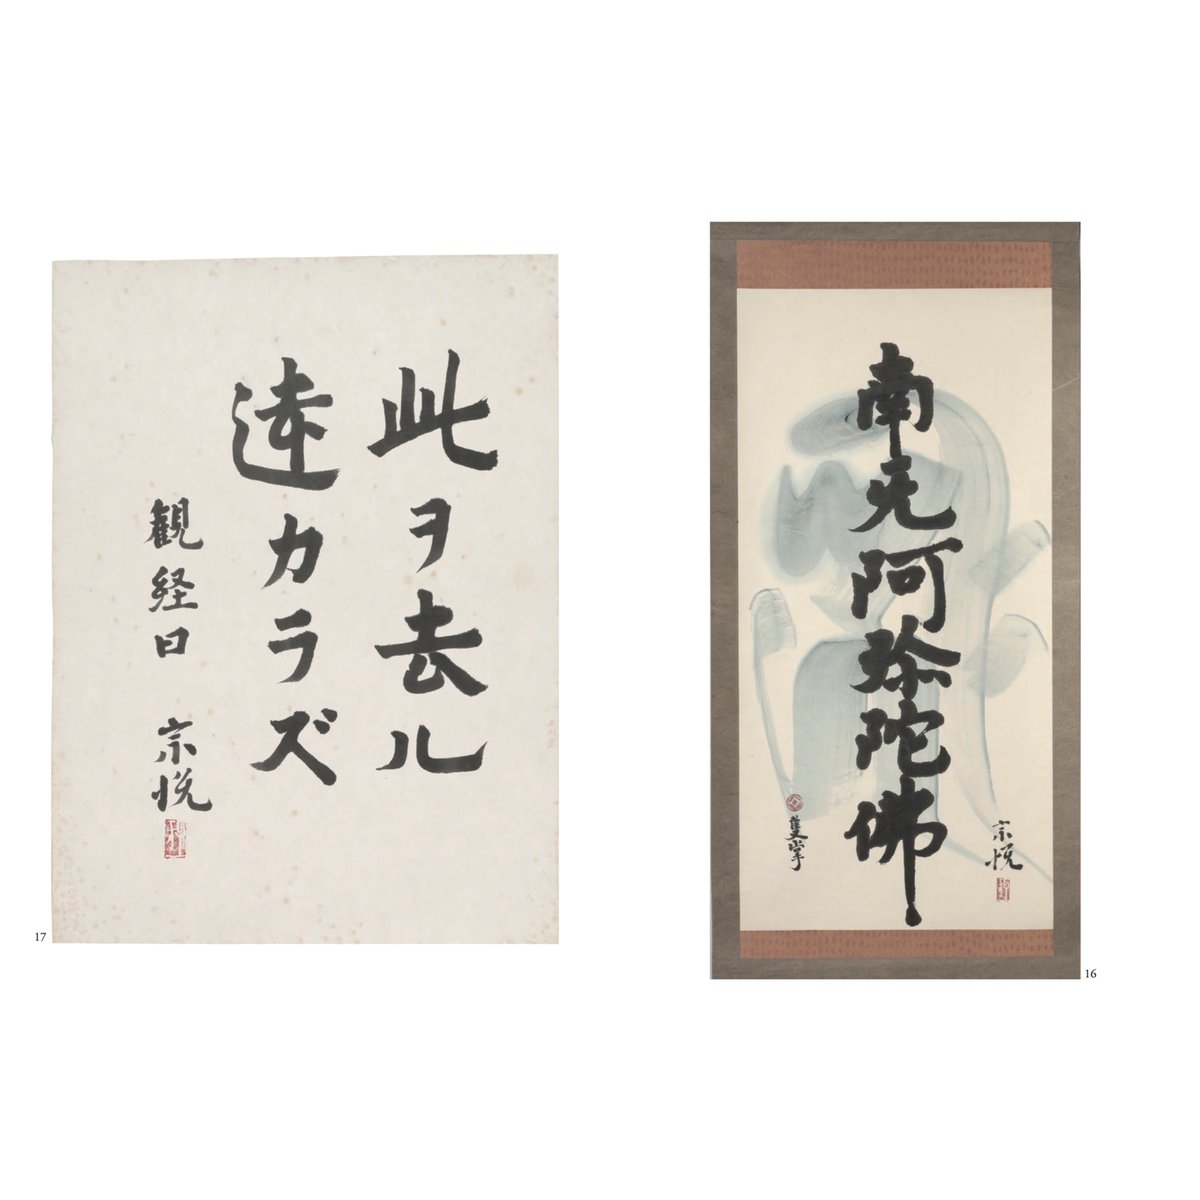 南无阿弥陀佛
宗悦
16
此ヲ去ル
遠カラズ
観経曰 宗悦
17